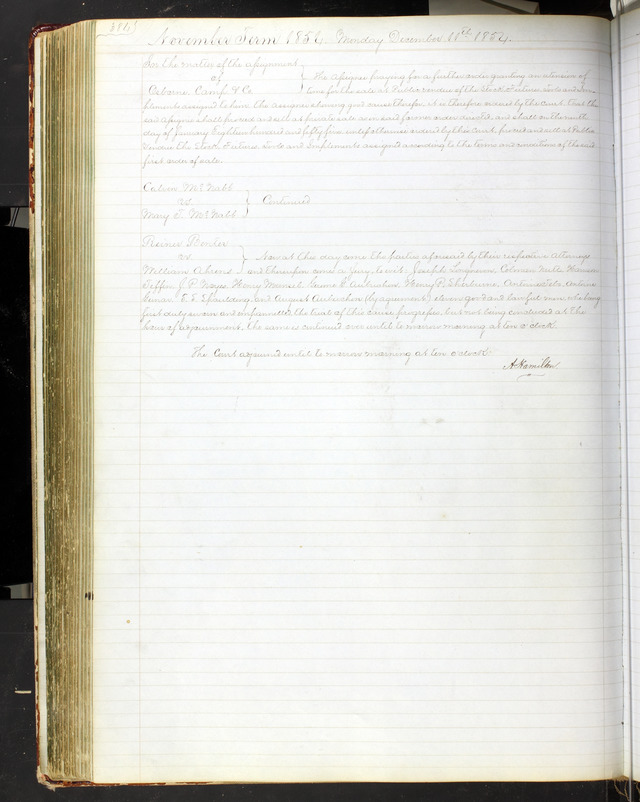 November Term 1854. Monday December 11th 1854.
In the matter of the assignment
of
Osborne Camp & Co
The assignee praying for a further order granting an extension of
time for the sale at Public vendue of the Stock Fixtures tools and Im-
plements assigned to him the assignee showing good cause therefor it is therefore ordered by the Court that the
said assignee shall proceed and sell at private sale as in said former order directed, and shall on the ninth
day of January Eighteen hundred and fifty five unless otherwise ordered by this Court proceed and sell at Public
Vendue the Stock Fixtures Tools and Implements assigned according to the terms and conditions of the said
first order of sale.
Calvin McNabb
vs
Mary T. McNabb
Continued
Reiner Bonker
vs.
William Ahrens
Now at this day come the parties aforesaid by their respective Attorneys
and thereupon come a jury to wit. Joseph
J. P. Noyes Henry
T. S. Spaulding and August (by agreement) eleven good and lawful men who being
first duly sworn and impannelled the trial of this cause progresses but not being concluded at the
hour of adjournment, the same is continued over until to morrow morning at ten o'clock.
The Court adjourned until to morrow morning at ten o'clock.
A Hamilton